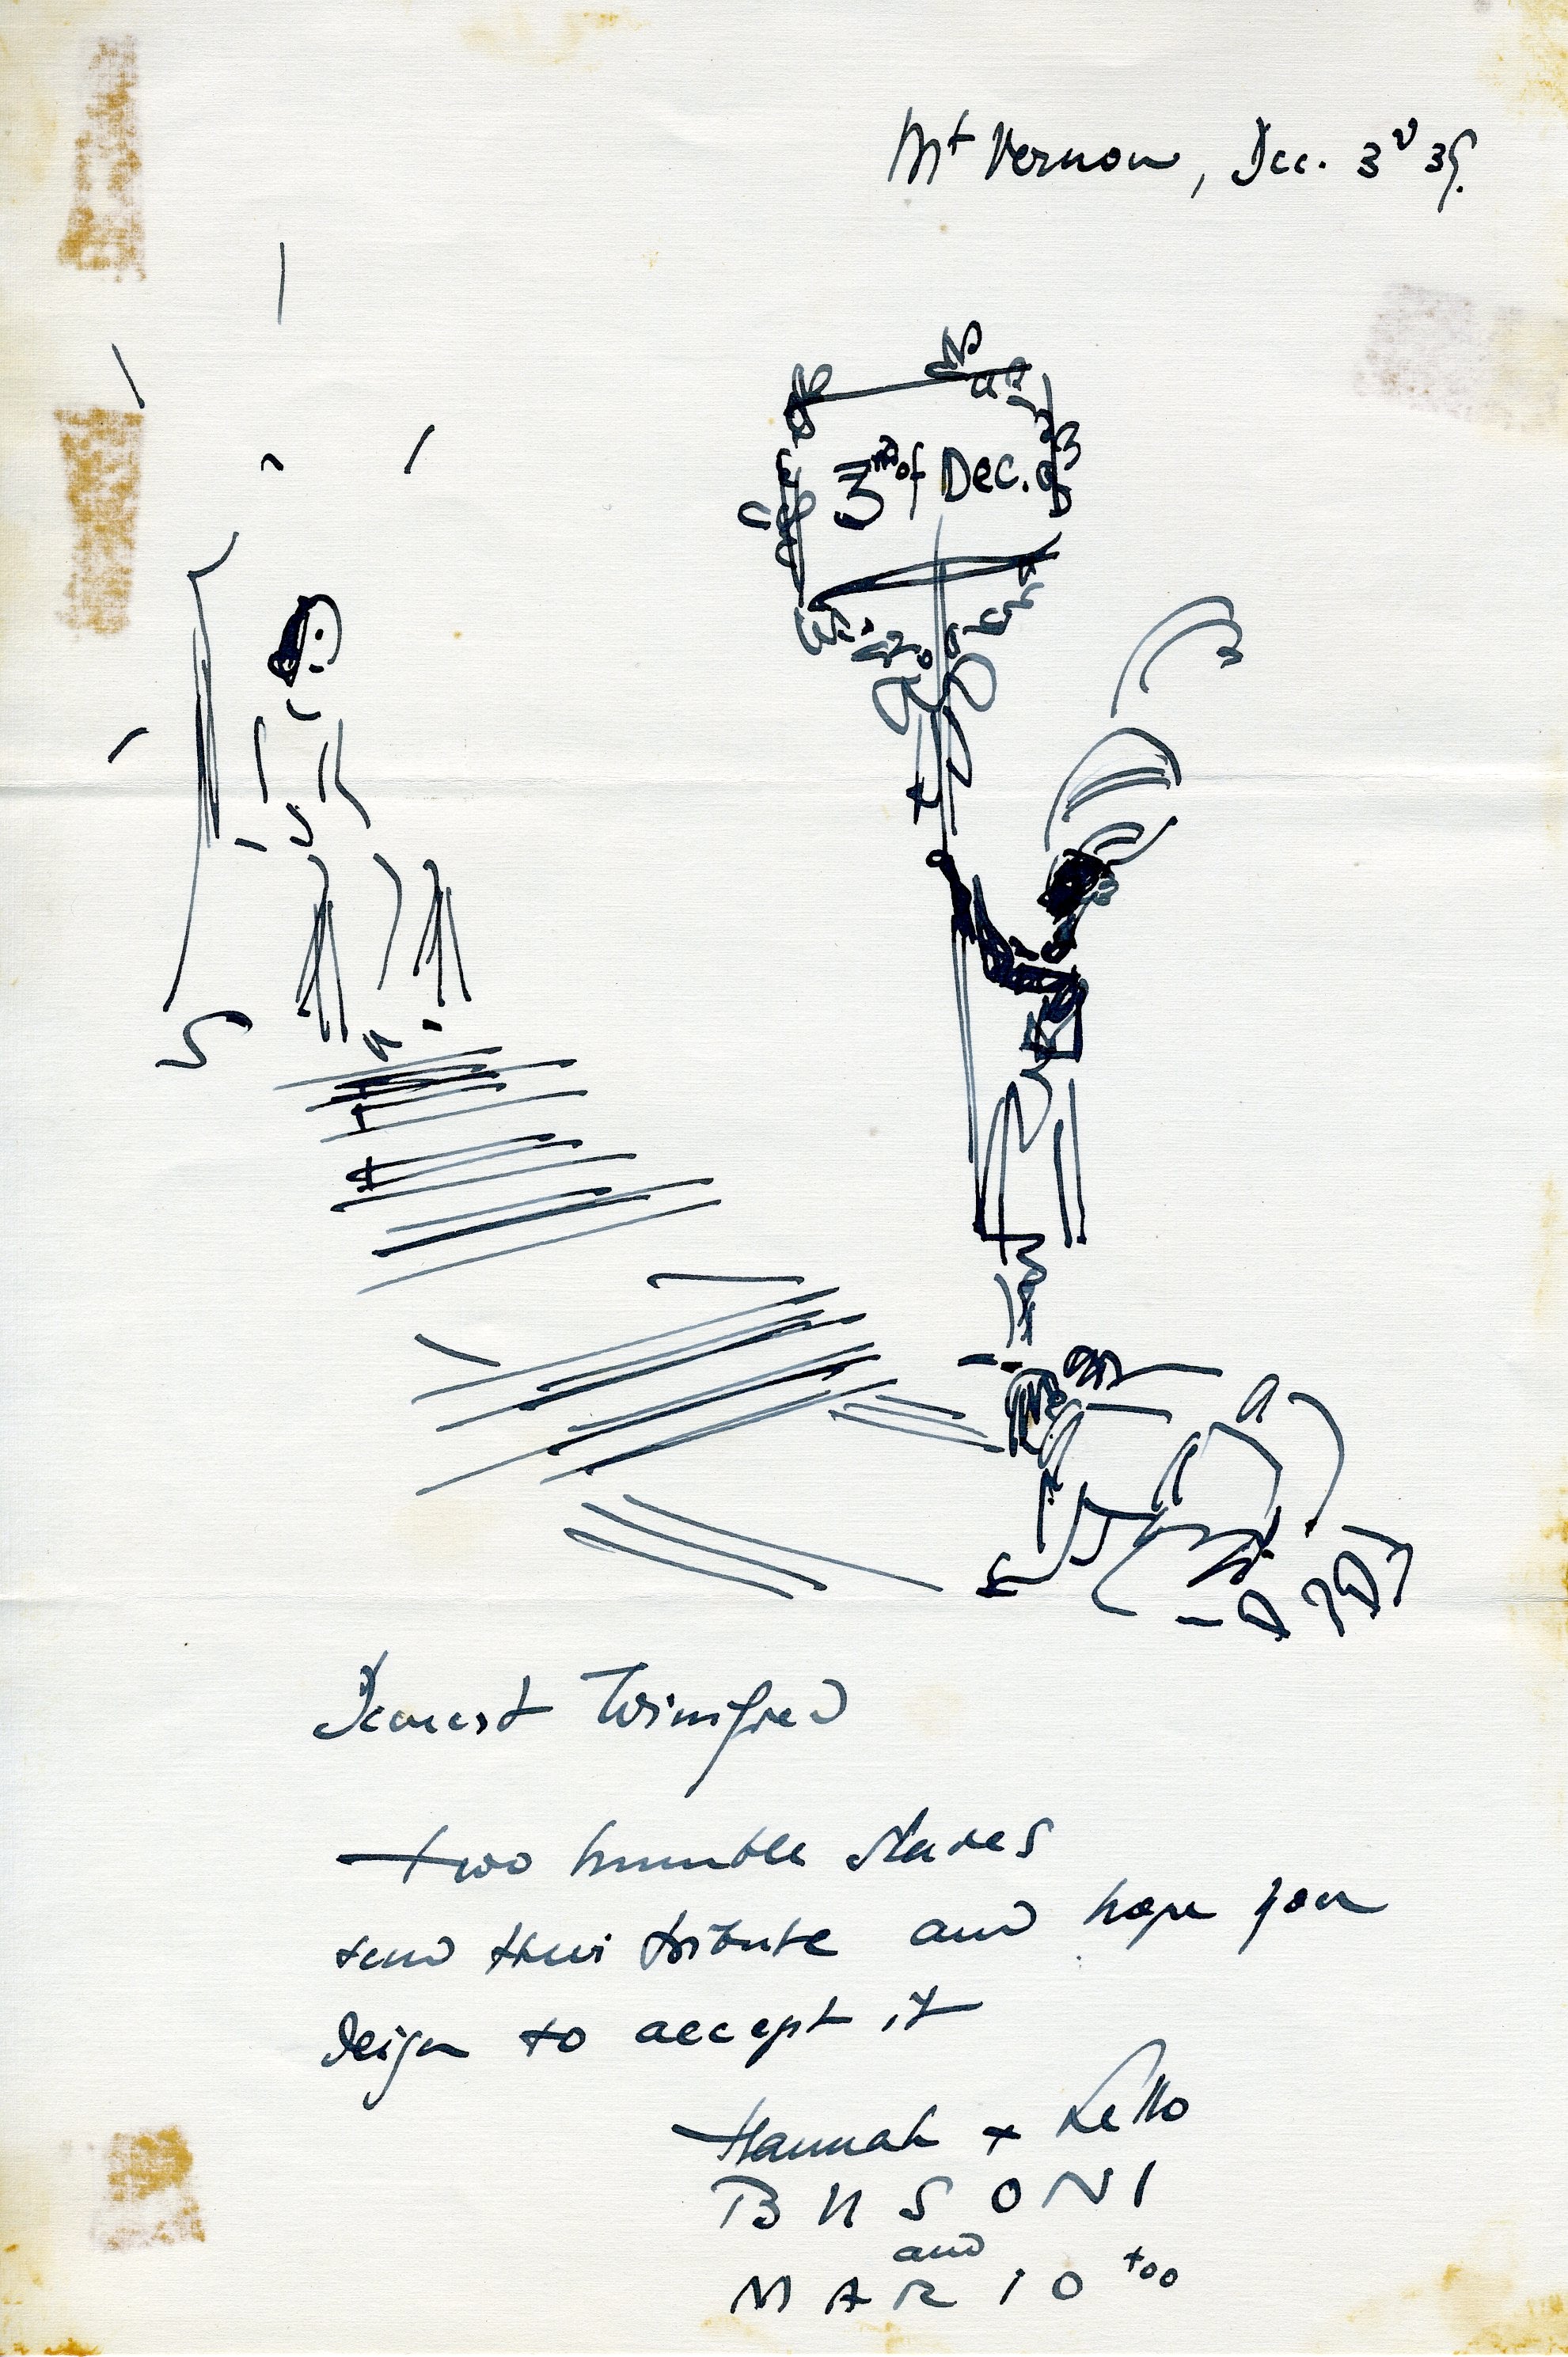 Mt Vernon, Dec. 3d 39.
3rd of Dec.
Dearest Winifred
two humble slaves
send their tribute and hope you
deign to accept it
Hannah + Lello
BUSONI
and
MARIO too